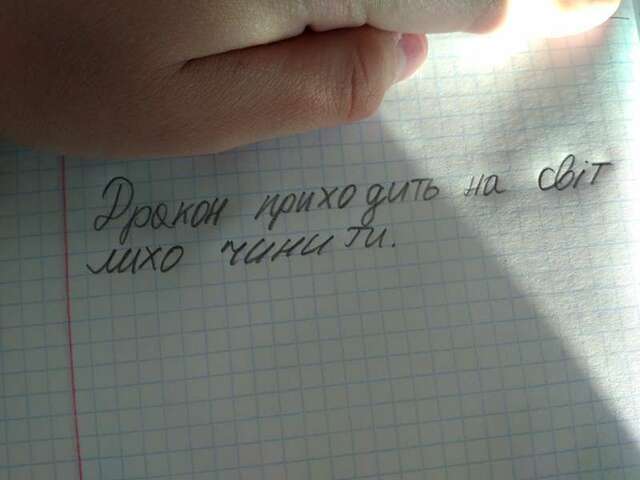 Дракон приходить на світ
лихо чинити.